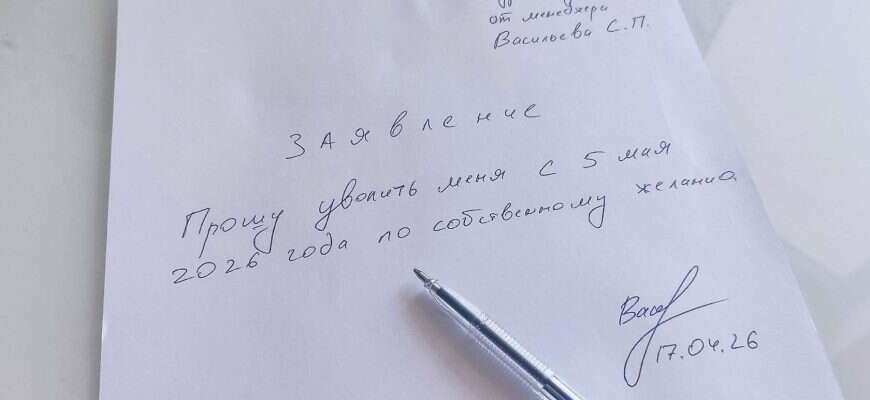 от менеджера
Васильева С.П.
Заявление
Прошу уволить меня с 5 мая
2026 года по собственному желанию
17.04.26